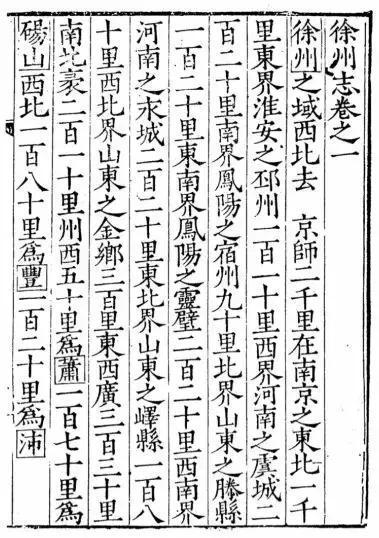 徐州志卷之一
徐州之域西北去 京師二千里在南京之東北一千
里東界淮安之邳州一百一十里西界河南之虞城二
百二十里南界鳳陽之宿州九十里北界山東之滕縣
一百二十里東南界鳳陽之靈璧二百二十里西南界
河南之永城二百二十里東北界山東之嶧縣一百八
十里西北界山東之金鄉三百里東西廣三百三十里
南北袤二百一十里州西五十里爲蕭一百七十里爲
碭山西北一百八十里爲豐一百二十里爲沛